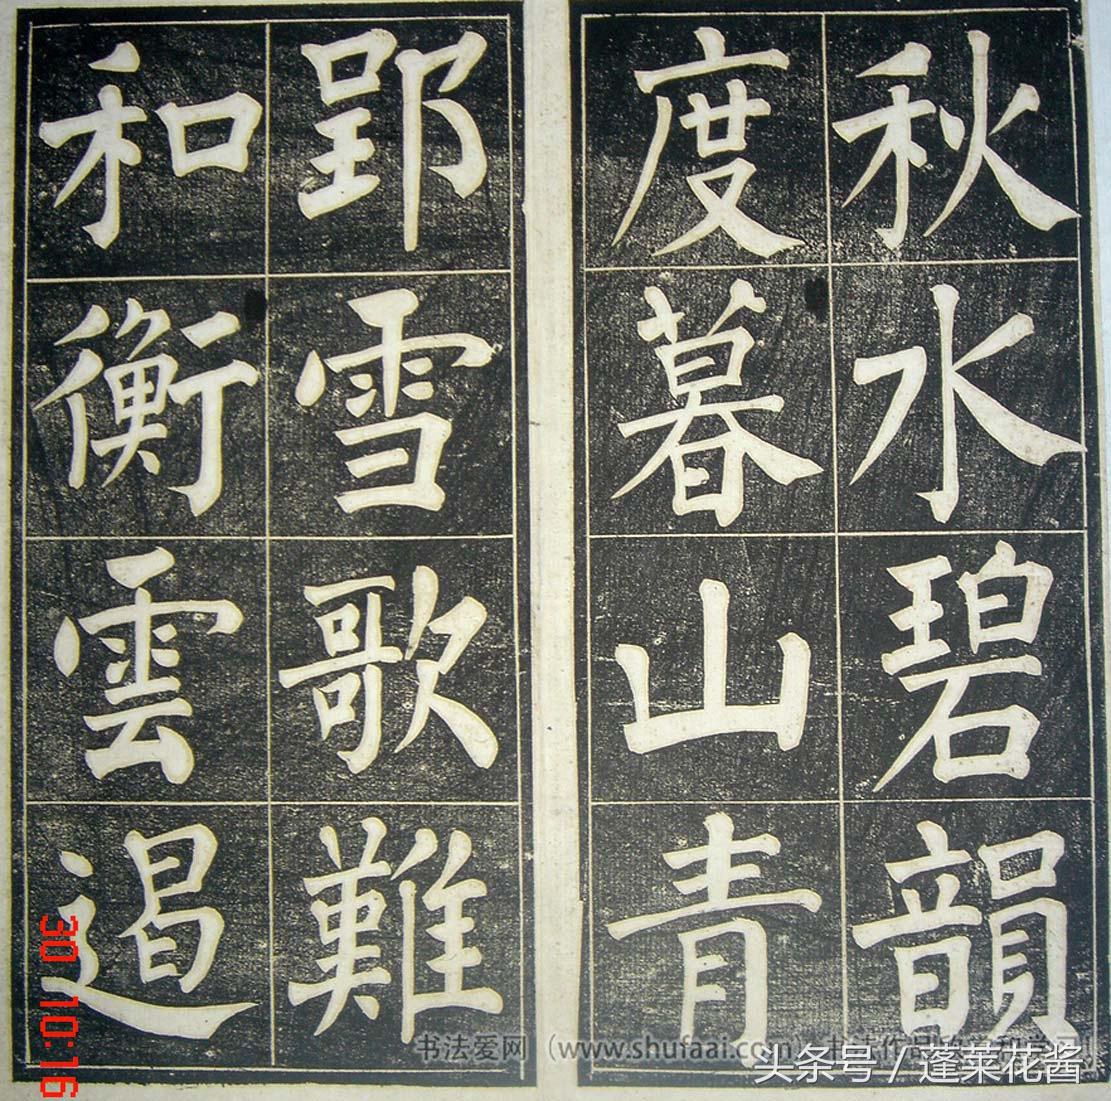 秋水碧韻
度暮山青
郢雪歌難
和衡雲遏
30 10:16
书法爱网（www.shufaai.com）书法作品
头条号 / 蓬莱花酱